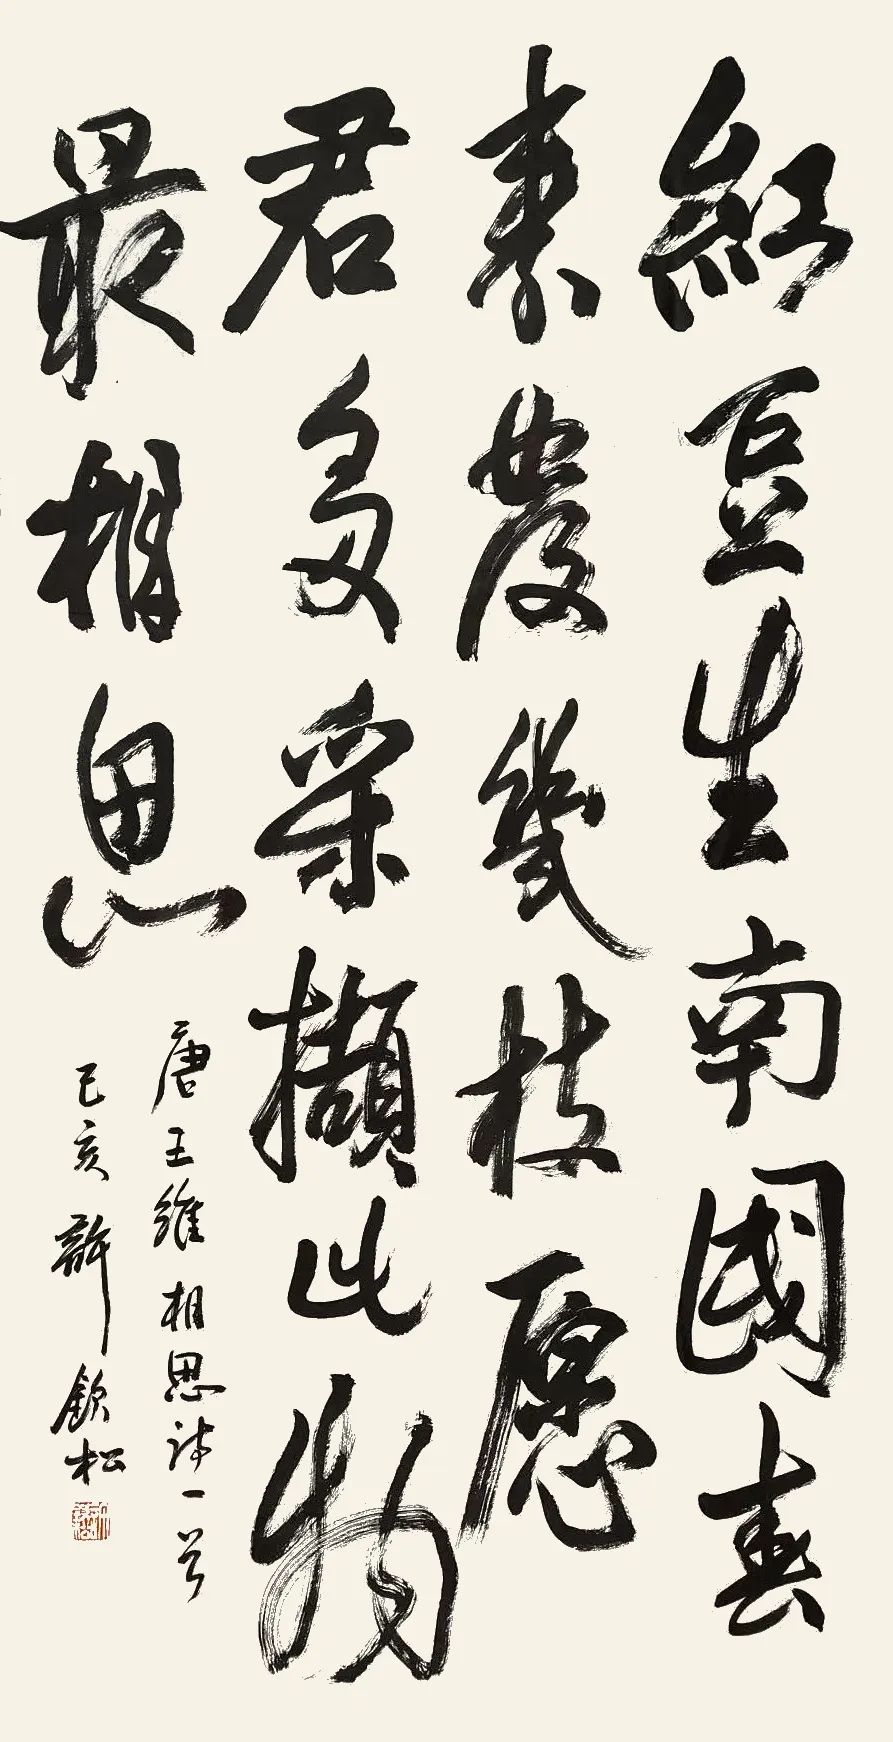 紅豆生南國春
来發幾枝愿
君多采擷此物
最相思
唐王維相思詩一首
己亥許欽松